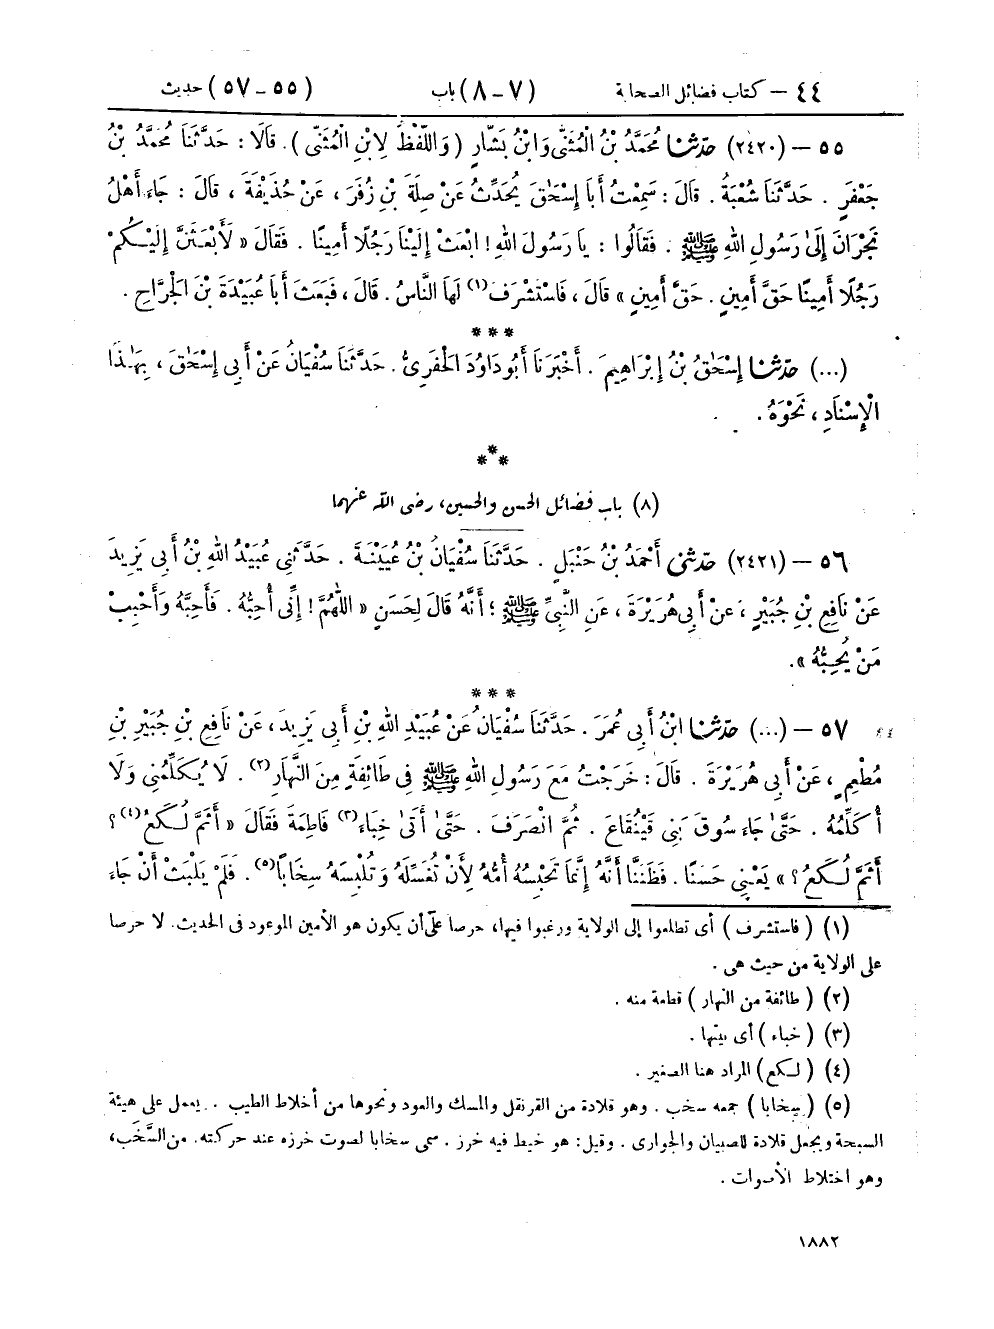 ٤٤ – كتاب فضائل الصحابة (٧ – ٨) باب (٥٥ – ٥٧) حديث
٥٥ – (٢٤٢٠) حَدَّثَنَا مُحَمَّدُ بْنُ الْمُثَنَّى وَابْنُ بَشَّارٍ (وَاللَّفْظُ لِابْنِ الْمُثَنَّى). قَالَا: حَدَّثَنَا مُحَمَّدُ بْنُ
جَعْفَرٍ. حَدَّثَنَا شُعْبَةُ. قَالَ: سَمِعْتُ أَبَا إِسْحَاقَ يُحَدِّثُ عَنْ صِلَةَ بْنِ زُفَرَ، عَنْ حُذَيْفَةَ، قَالَ: جَاءَ أَهْلُ
نَجْرَانَ إِلَىٰ رَسُولِ اللهِ ﷺ. فَقَالُوا: يَا رَسُولَ اللهِ! ابْعَثْ إِلَيْنَا رَجُلًا أَمِينًا. فَقَالَ «لَأَبْعَثَنَّ إِلَيْكُمْ
رَجُلًا أَمِينًا حَقَّ أَمِينٍ. حَقَّ أَمِينٍ» قَالَ، فَاسْتَشْرَفَ(١) لَهَا النَّاسُ. قَالَ، فَبَعَثَ أَبَا عُبَيْدَةَ بْنَ الْجَرَّاحِ.
***
(...) حَدَّثَنَا إِسْحَٰقُ بْنُ إِبْرَاهِيمَ. أَخْبَرَنَا أَبُو دَاوُدَ الْحَفَرِيُّ. حَدَّثَنَا سُفْيَانُ عَنْ أَبِي إِسْحَٰقَ، بِهَٰذَا
الْإِسْنَادِ، نَحْوَهُ.
***
(٨) باب فضائل الحسن والحسين، رضى الله عنهما
٥٦ – (٢٤٢١) حَدَّثَنِي أَحْمَدُ بْنُ حَنْبَلٍ. حَدَّثَنَا سُفْيَانُ بْنُ عُيَيْنَةَ. حَدَّثَنِي عُبَيْدُ اللهِ بْنُ أَبِي يَزِيدَ
عَنْ نَافِعِ بْنِ جُبَيْرٍ، عَنْ أَبِي هُرَيْرَةَ، عَنِ النَّبِيِّ ﷺ؛ أَنَّهُ قَالَ لِحَسَنٍ «اللَّهُمَّ! إِنِّي أُحِبُّهُ. فَأَحِبَّهُ وَأَحْبِبْ
مَنْ يُحِبُّهُ».
***
٥٧ – (...) حَدَّثَنَا ابْنُ أَبِي عُمَرَ. حَدَّثَنَا سُفْيَانُ عَنْ عُبَيْدِ اللهِ بْنِ أَبِي يَزِيدَ، عَنْ نَافِعِ بْنِ جُبَيْرِ بْنِ
مُطْعِمٍ، عَنْ أَبِي هُرَيْرَةَ. قَالَ: خَرَجْتُ مَعَ رَسُولِ اللهِ ﷺ فِي طَائِفَةٍ مِنَ النَّهَارِ(٢). لَا يُكَلِّمُنِي وَلَا
أُكَلِّمُهُ. حَتَّىٰ جَاءَ سُوقَ بَنِي قَيْنُقَاعَ. ثُمَّ انْصَرَفَ. حَتَّىٰ أَتَىٰ خِبَاءَ(٣) فَاطِمَةَ فَقَالَ «أَثَمَّ لُكَعُ(٤)؟
أَثَمَّ لُكَعُ؟» يَعْنِي حَسَنًا. فَظَنَنَّا أَنَّهُ إِنَّمَا تَحْبِسُهُ أُمُّهُ لِأَنْ تُغَسِّلَهُ وَتُلْبِسَهُ سِخَابًا(٥). فَلَمْ يَلْبَثْ أَنْ جَاءَ
(١) (فاستشرف) أى تطلعوا إلى الولاية ورغبوا فيها، حرصا على أن يكون هو الأمين الموعود فى الحديث. لا حرصا
على الولاية من حيث هى.
(٢) (طائفة من النهار) قطعة منه.
(٣) (خباء) أى بيتها.
(٤) (لكع) المراد هنا الصغير.
(٥) (سخابا) جمعه سخب. وهو قلادة من القرنفل والمسك والعود ونحوها من أخلاط الطيب. يعمل على هيئة
السبحة ويجعل قلادة للصبيان والجوارى. وقيل: هو خيط فيه خرز. سمى سخابا لصوت خرزه عند حركته. من السَّخَب،
وهو اختلاط الأصوات.
١٨٨٢